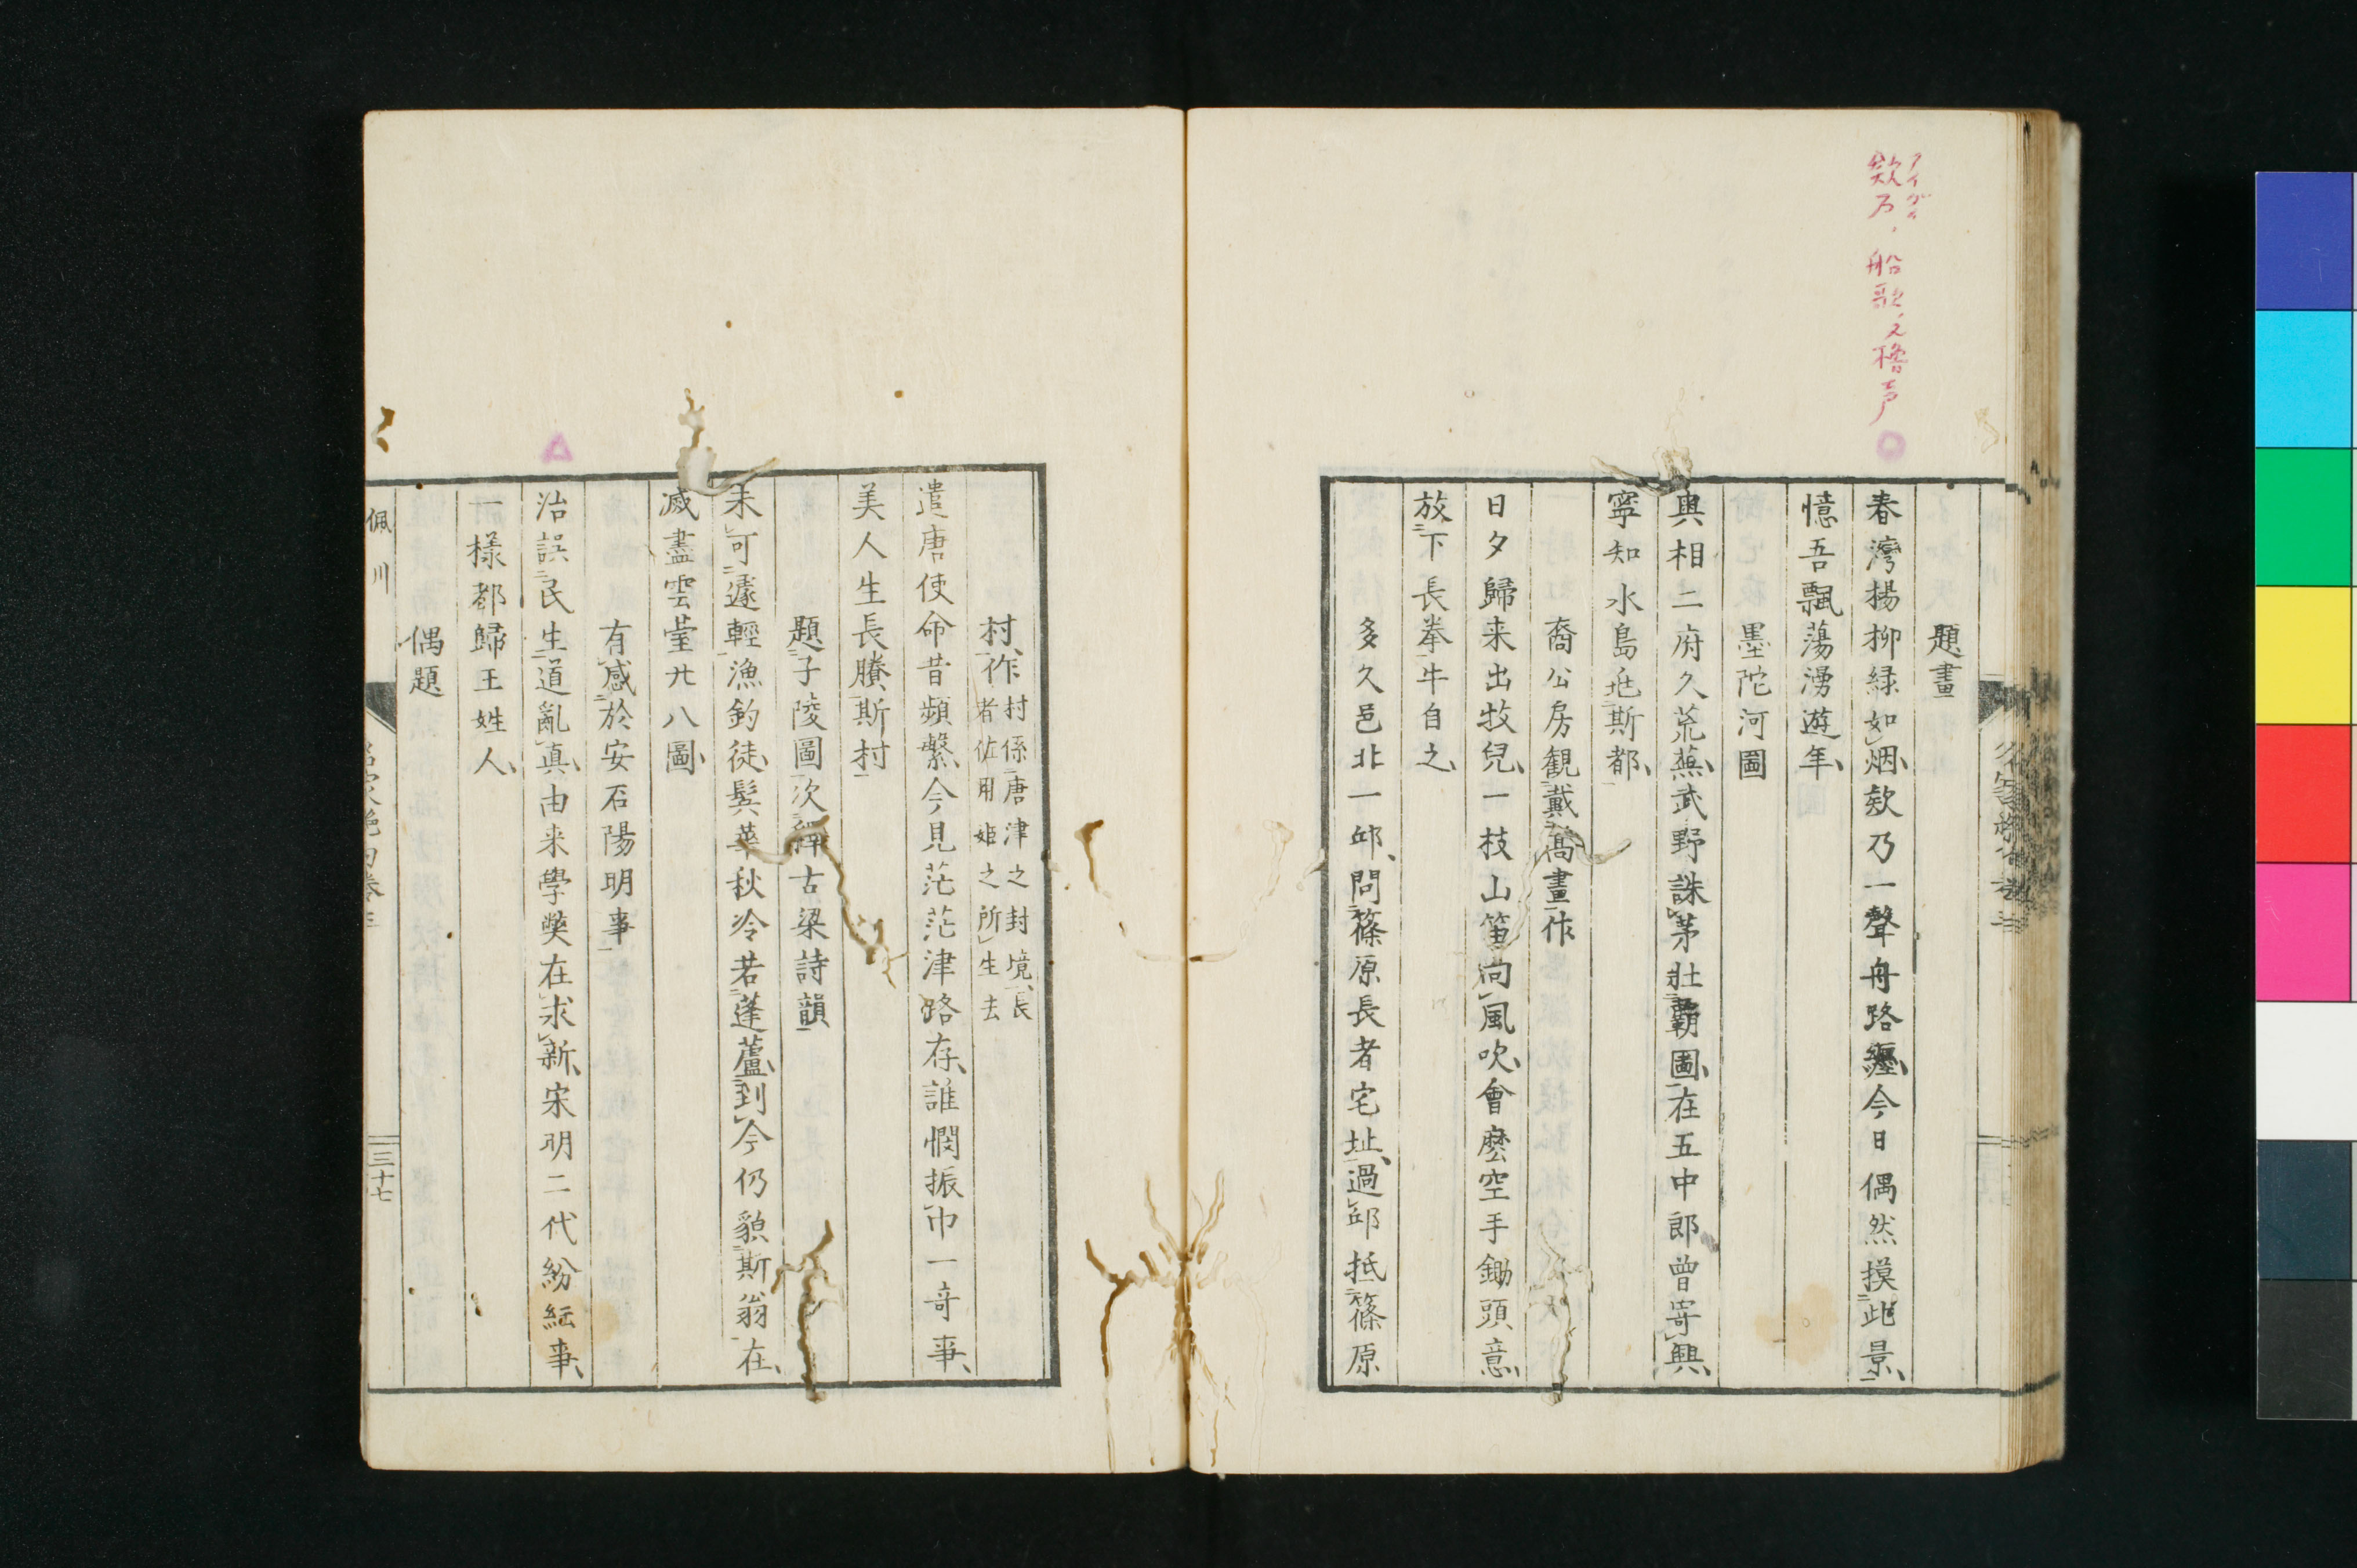 アイダイ
欸乃、船歌、又櫓声
題畫
春灣楊柳緑如烟欸乃一聲舟路纒今日偶然摸此景
憶吾飄蕩湧遊年
墨陀河圖
與相二府久荒蕪武野誅茅壯覇圖在五中郎曾寄興
寧知水島是斯都
裔公房観戴嵩畫作
日夕歸来出牧兒一枝山笛向風吹會麽空手鋤頭意
放下長拳牛自之
多久邑北一邱問篠原長者宅址過邱抵篠原
村作村係唐津之封境長
者佐用姫之所生去
遣唐使命昔頻繁今見茫茫津路存誰憫振巾一奇事
美人生長賸斯村
題子陵圖次古梁詩韻
未可遽輕漁釣徒鬓華秋冷若蓬蘆到今仍貌斯翁在
滅盡雲䑓廿八圖
有感於安石陽明事
治誤民生道亂真由来學奬在求新宋明二代紛紜事
一樣都歸王姓人
偶題
佩川
三十七